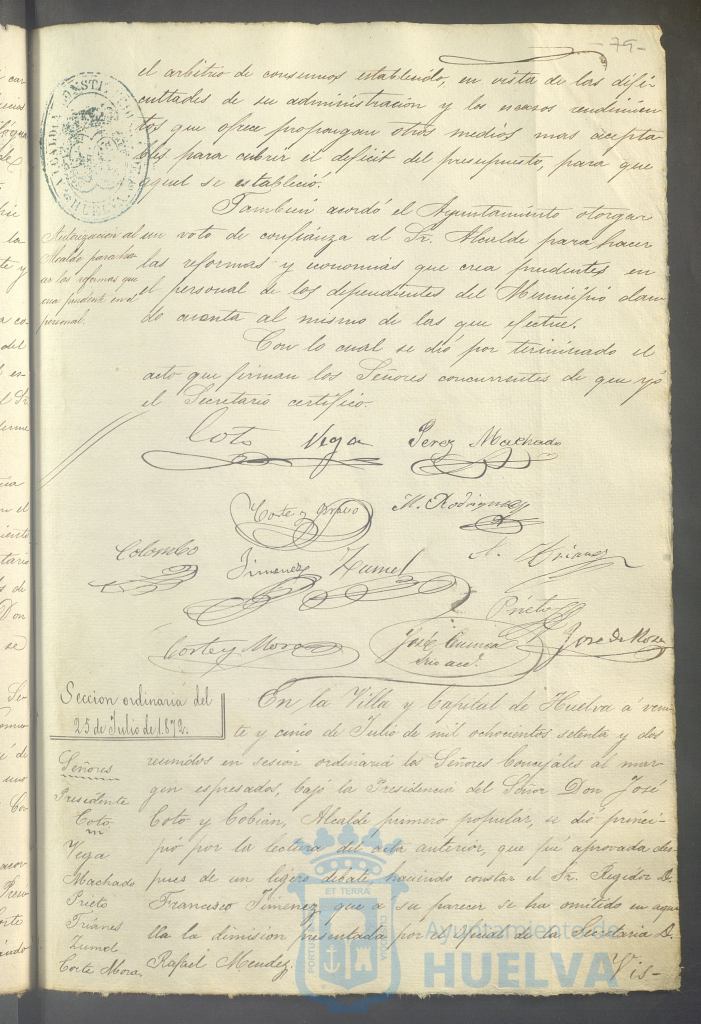 -79-
el arbitrio de consumos establecido, en vista de las difi-
cultades de su administracion y los escasos rendimien-
tos que ofrece propongan otros medios mas acepta-
bles para cubrir el deficit del presupuesto, para que
aquel se estableció.
Tambien acordó el Ayuntamiento otorgar
un voto de confianza al Sr. Alcalde para hacer
las reformas y economias que crea prudentes en
el personal de los dependientes del Municipio dan-
do cuenta al mismo de las que efectue.
Autorizacion al
Alcalde para ha-
cer las reformas que
crea prudente en el
personal.
Con lo cual se dió por terminado el
acto que firman los Señores concurrentes de que yó
el Secretario certifico.
Coto Vega Perez Machado
Corte y Bravo M. Rodriguez
Colombo Jimenez Zumel
Prieto
Corte y Mora José Cuenca José de Mora
Srio accl.
Seccion ordinaria del
25 de Julio de 1872.
Señores
Presidente
Coto
Vega
Machado
Prieto
Trianes
Zumel
Corte Mora
En la Villa y Capital de Huelva á vein-
te y cinco de Julio de mil ochocientos setenta y dos
reunidos en sesion ordinaria los Señores Concejales al mar-
gen espresados, bajo la Presidencia del Señor Don José
Coto y Cobian, Alcalde primero popular, se dió princi-
pió por la lectura del acta anterior, que fué aprovada des-
pues de un ligero debate, haciendo constar el Sr. Regidor D.
Francisco Jimenez que a su parecer se ha omitido en aque-
lla la dimision presentada por el oficial de la Secretaria D.
Rafael Mendez.
Vis-
ET TERRA
PORTUS
CUSTODIA
Ayuntamiento de
HUELVA